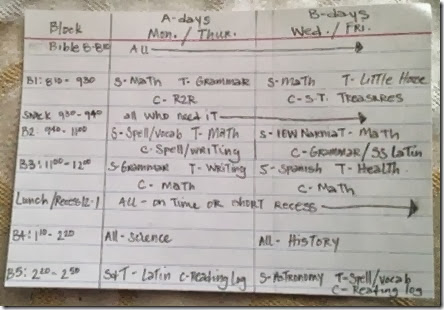 Block A-days B-days
Mon. / Thur. Wed. / Fri.
Bible 8-810 ALL
B1: 810 - 930 S-Math T- Grammar S-Math T- Little House
C- R2R C- S.T. Treasures
Snack 930-940 all who need it
B2: 940 - 1100 S-Spell/vocab T- Math S- IEW Narnia T- Math
C- Spell/writing C- Grammar/ SS Latin
B3: 1100 - 1200 S-Grammar T- Writing S-Spanish T- Health
C- Math C- Math
Lunch/Recess 12-1 ALL - on Time OR short Recess
B4: 110 - 220 All- Science All- History
B5: 220 - 250 S&T- Latin C-Reading Log S-Astronomy T-Spell/vocab
C- Reading log